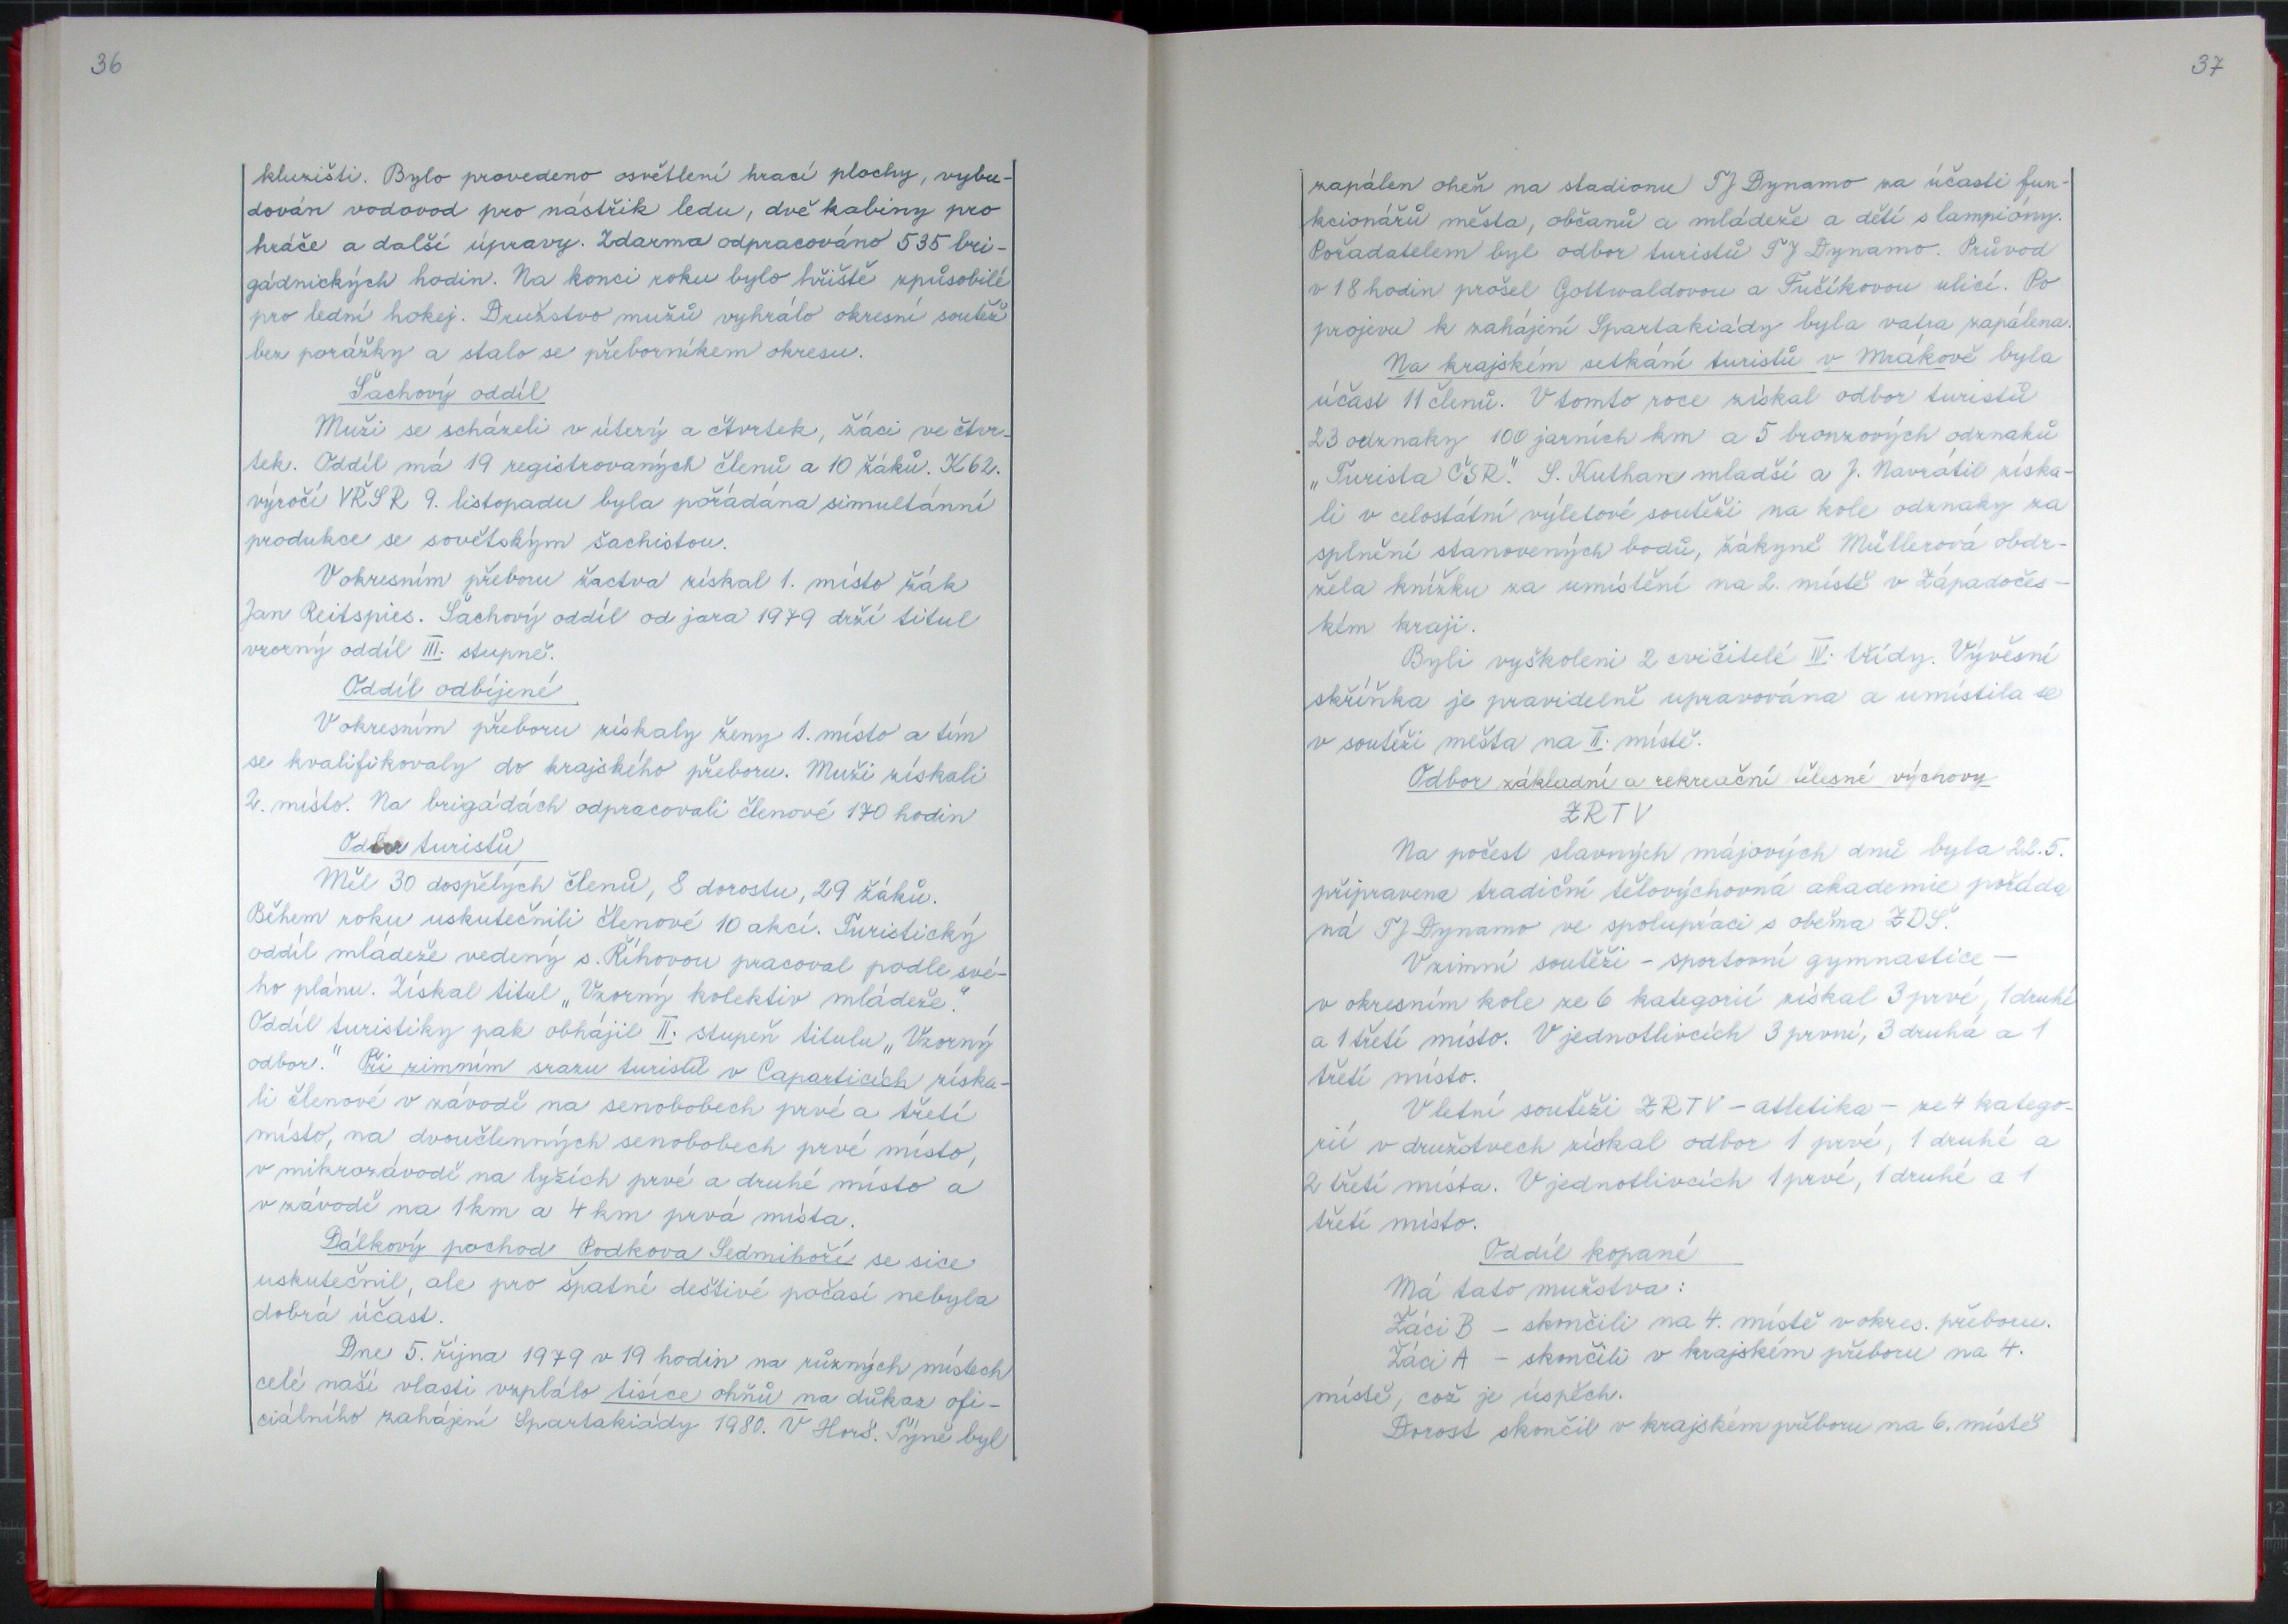 36
kluzišti. Bylo provedeno osvětlení hrací plochy, vybu-
dován vodovod pro nástřik ledu, dvě kabiny pro
hráče a další úpravy. Zdarma odpracováno 535 bri-
gádnických hodin. Na konci roku bylo hřiště způsobilé
pro lední hokej. Družstvo mužů vyhrálo okresní soutěž
bez porážky a stalo se přeborníkem okresu.
Šachový oddíl
Muži se scházeli v úterý a čtvrtek, žáci ve čtvr-
tek. Oddíl má 19 registrovaných členů a 10 žáků. K 62.
výročí VŘSR 9. listopadu byla pořádána simultánní
produkce se sovětským šachistou.
V okresním přeboru žactva získal 1. místo žák
Jan Reitspies. Šachový oddíl od jara 1979 drží titul
vzorný oddíl III. stupně.
Oddíl odbíjené
V okresním přeboru získaly ženy 1. místo a tím
se kvalifikovaly do krajského přeboru. Muži získali
2. místo. Na brigádách odpracovali členové 170 hodin
Odbor turistů
Měl 30 dospělých členů, 8 dorostu, 29 žáků.
Během roku uskutečnili členové 10 akcí. Turistický
oddíl mládeže vedený s. Říhovou pracoval podle své-
ho plánu. Získal titul „Vzorný kolektiv mládeže."
Oddíl turistiky pak obhájil II. stupeň titulu „Vzorný
odbor." Při zimním srazu turistů v Caparticích získa-
li členové v závodě na senobobech prvé a třetí
místo, na dvoučlenných senobobech prvé místo,
v mikrozávodě na lyžích prvé a druhé místo a
v závodě na 1 km a 4 km prvá místa.
Dálkový pochod Podkova Sedmihoří se sice
uskutečnil, ale pro špatné deštivé počasí nebyla
dobrá účast.
Dne 5. října 1979 v 19 hodin na různých místech
celé naší vlasti vzplálo tisíce ohňů na důkaz ofi-
ciálního zahájení Spartakiády 1980. V Horš. Týně byl
37
zapálen oheň na stadionu TJ Dynamo za účasti fun-
kcionářů města, občanů a mládeže a dětí s lampióny.
Pořadatelem byl odbor turistů TJ Dynamo. Průvod
v 18 hodin prošel Gottwaldovou a Fučíkovou ulicí. Po
projevu k zahájení Spartakiády byla vatra zapálena.
Na krajském setkání turistů v Mrákově byla
účast 11 členů. V tomto roce získal odbor turistů
23 odznaky 100 jarních km a 5 bronzových odznaků
„Turista ČSR". S. Kuthan mladší a J. Navrátil získa-
li v celostátní výletové soutěži na kole odznaky za
splnění stanovených bodů, žákyně Müllerová obdr-
žela knížku za umístění na 2. místě v Západočes-
kém kraji.
Byli vyškoleni 2 cvičitelé IV. třídy. Vývěsní
skříňka je pravidelně upravována a umístila se
v soutěži mešta na II. místě.
Odbor základní a rekreační tělesné výchovy
ZRTV
Na počest slavných májových dnů byla 22.5.
připravena tradiční tělovýchovná akademie pořáda
ná TJ Dynamo ve spolupráci s oběma ZDŠ.
V zimní soutěži - sportovní gymnastice -
v okresním kole ze 6 kategorií získal 3 prvé, 1 druhé
a 1 třetí místo. V jednotlivcích 3 první, 3 druhá a 1
třetí místo.
V letní soutěži ZRTV - atletika - ze 4 katego-
rií v družstvech získal odbor 1 prvé, 1 druhé a
2 třetí místa. V jednotlivcích 1 prvé, 1 druhé a 1
třetí místo.
Oddíl kopané
Má tato mužstva:
Žáci B - skončili na 4. místě v okres. přeboru.
Žáci A - skončili v krajském přeboru na 4.
místě, což je úspěch.
Dorost skončil v krajském přeboru na 6. místě